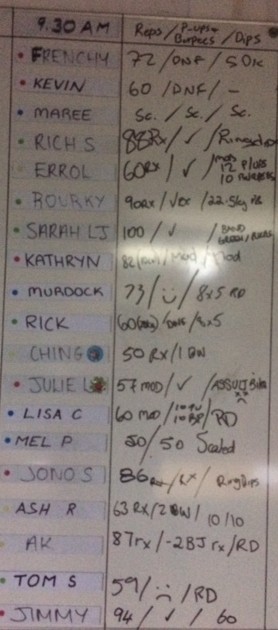 9.30 AM Reps / P-ups + Burpees / Dips
FRENCHY 72 / DNF / 50k
KEVIN 60 / DNF / -
MAREE Sc. / Sc. / Sc.
RICH S 88Rx / ✓ /
ERROL 60Rx / ✓ / 12 P/UPS 10
ROURKY 90Rx /
SARAH LJ 100 / ✓ / BAND GREEN /
KATHRYN 82 / Mod / Mod
MURDOCK 73 / :) / 8x5 RD
RICK 60 / DNF /
CHING 50 RX / 1 BW
JULIE L 57 MOD / ✓ /
LISA C 60 MOD / 10 PU 10 BP / RD
MEL P 50 / 50 Scaled
JONO S 86 / RX / Ring Dips
ASH R 63 Rx / 2 BW / 10/10
AK 87rx / -2BJ rx / RD
TOM S 59 / :( / RD
JIMMY 94 / ✓ / 60